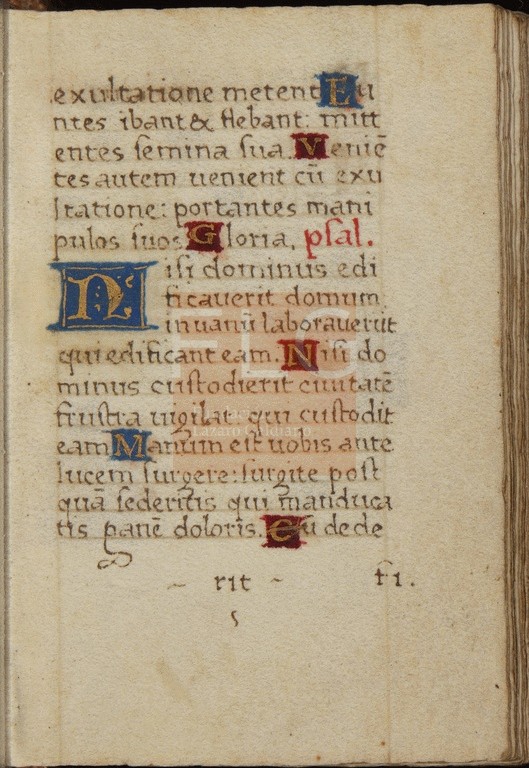 exultatione metent Eu
ntes ibant & flebant: mitt
entes semina sua. Veniē
tes autem uenient cū exu
ltatione: portantes mani
pulos suos Gloria, psal.
Nisi dominus edi
ficauerit domum
in uanū laborauerūt
qui edificant eam. Nisi do
minus custodierit ciuitatē
frustra uigilat qui custodit
eam Vanum est uobis ante
lucem surgere: surgite post
quā sederitis qui manduca
tis panē doloris. Cū de de
~ rit ~ fi.
FLG
Lázaro Galdiano